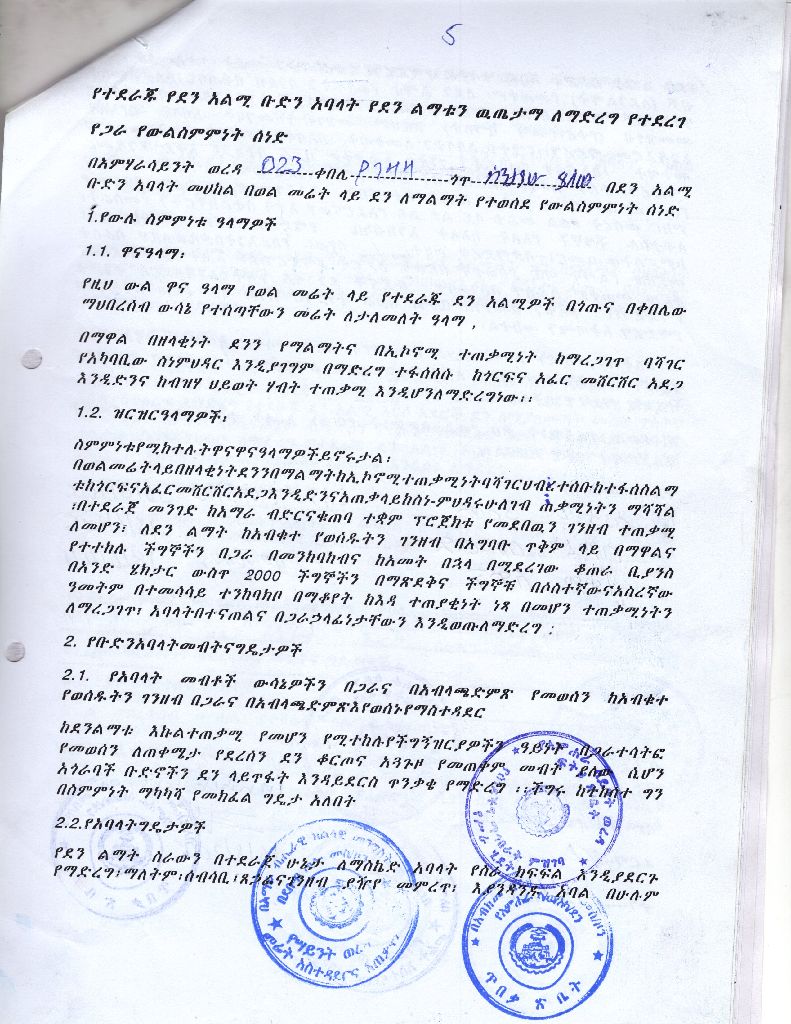 5
የተደራጁ የደን አልሚ ቡድን አባላት የደን ልማቱን ዉጤታማ ለማድረግ የተደረገ
የጋራ የውልስምምነት ሰነድ
በአምሃራሳይንት ወረዳ 023 ቀበሌ ጎጥ በደን አልሚ
ቡድን አባላት መሀከል በወል መሬት ላይ ደን ለማልማት የተወሰደ የውልስምምነት ሰነድ
1.የውሉ ስምምነቱ ዓላማዎች
1.1. ዋናዓላማ፡
የዚህ ውል ዋና ዓላማ የወል መሬት ላይ የተደራጁ ደን አልሚዎች በጎጡና በቀበሌው
ማህበረሰብ ውሳኔ የተሰጣቸውን መሬት ለታለመለት ዓላማ
በማዋል በዘላቂነት ደንን የማልማትና በኢኮኖሚ ተጠቃሚነት ከማረጋገጥ ባሻገር
የአካባቢው ስነምህዳር እንዲያገግም በማድረግ ተፋሰሱ ከጎርፍና አፈር መሸርሸር አደጋ
እንዲድንና ከብዝሃ ህይወት ሃብት ተጠቃሚ እንዲሆንለማድረግነው፡፡
1.2. ዝርዝርዓላማዎች፡
ስምምነቱየሚከተሉትዋናዋናዓላማዎችይኖሩታል፡
በወልመሬትላይበዘላቂነትደንንበማልማትከኢኮኖሚተጠቃሚነትባሻገር
ቱከጎርፍናአፈርመሸርሸርአደጋእንዲድንናአጠቃላይከስነ-ምህዳሩሁለገብ ጠቃሚነትን ማሻሻል
፡በተደራጀ መንገድ ከአማራ ብድርናቁጠባ ተቋም ፕሮጀክቱ የመደበዉን ገንዘብ ተጠቃሚ
ለመሆን፣ ለደን ልማት ከአብቁተ የወሰዱትን ገንዘብ በአግባቡ ጥቅም ላይ በማዋልና
የተተከሉ ችግኞችን በጋራ በመንከባከብና ከአመት በኋላ በሚደረገው ቆጠራ ቢያንስ
በአንድ ሄክታር ውስጥ 2000 ችግኞችን በማጽደቅና ችግኞቹ በሶስተኛውናአስረኛው
ዓመትም በተመሳሳይ ተንከባክቦ በማቆየት ከእዳ ተጠያቂነት ነጻ በመሆን ተጠቃሚነትን
ለማረጋገጥ፣ አባላትበተናጠልና በጋራኃላፊነታቸውን እንዲወጡለማድረግ :
2. የቡድንአባላትመብትናግዴታዎች
2.1. የአባላት መብቶች ውሳኔዎችን በጋራና በአብላጫድምጽ የመወሰን ከአብቁተ
የወሰዱትን ገንዘብ በጋራና በአብላጫድምጽእየወሰኑየማስተዳደር
ከደንልማቱ እኩልተጠቃሚ የመሆን የሚተከሉየችግኝዝርያዎችን ዓይነት በጋራተሳትፎ
የመወሰን ለጠቀሜታ የደረሰን ደን ቆርጦና አጓጉዞ የመጠቀም መብት ያለው ሲሆን
አጎራባች ቡድኖችን ደን ላይጥፋት እንዳይደርስ ጥንቃቄ የማድረግ ፡፡ችግሩ ከተከሰተ ግን
በስምምነት ማካካሻ የመክፈል ግዴታ አለበት
2.2.የአባላትግዴታዎች
የደን ልማት ስራውን በተደራጀ ሁኔታ ለማስኬድ አባላት የስራ ክፍፍል እንዲያደርጉ
የማድረግ፡ማለትም፡ሰብሳቢ፡ጸኃፊናገንዘብ ያዥየ መምረጥ፣ እያንዳንዱ አባል በሁሉም
ምዝገባ
መሬት አስተዳደርና አጠቃቀም
ጥበቃ ጽ ቤት